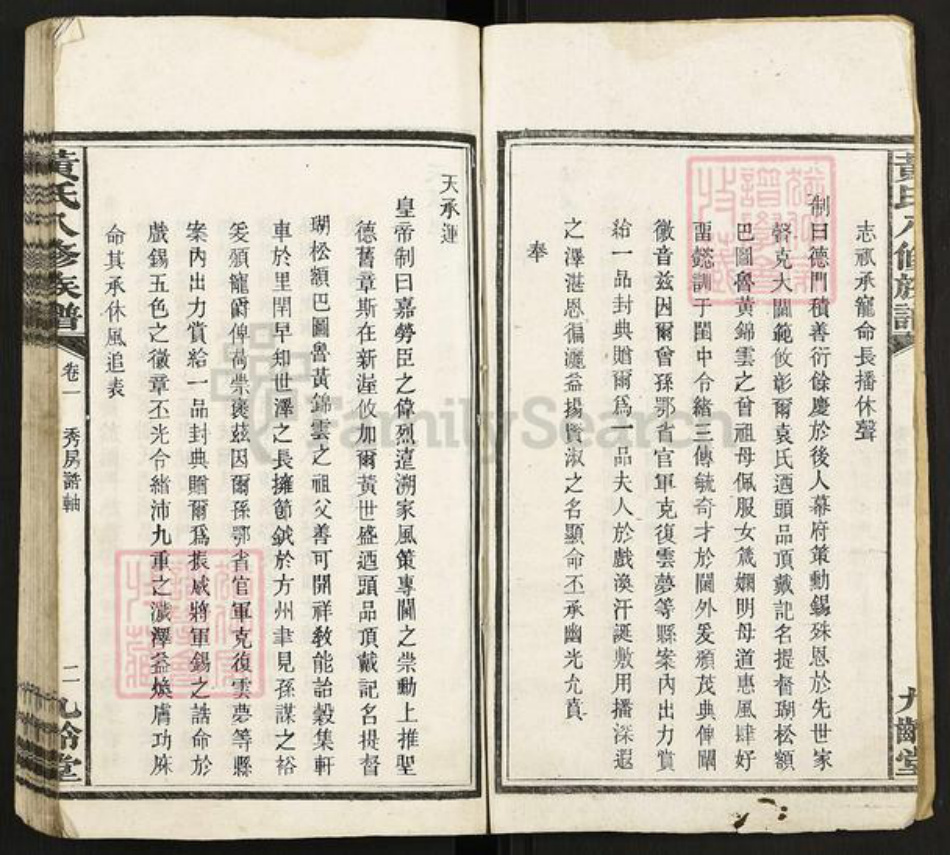 志祇承寵命長播休聲
制曰德門積善衍餘慶於後人幕府策勳錫殊恩於先世家
聲克大閫範攸彰爾袁氏迺頭品頂戴記名提督瑚松額
巴圖魯黃錦雲之曾祖母佩服女箴嫻明母道惠風肆好
聖懿訓于閨中令緒三傳毓奇才於閫外爰頒茂典俾闡
徽音茲因爾曾孫鄂省官軍克復雲夢等縣案內出力賞
給一品封典贈爾爲一品夫人於戲渙汗誕敷用播深遐
之澤湛恩徧灑益揚賢淑之名顯命丕承幽光允賁
奉
天承運
皇帝制曰嘉勞臣之偉烈遠溯家風策專閫之崇勳上推聖
德舊章斯在新渥攸加爾黃世盛迺頭品頂戴記名提督
瑚松額巴圖魯黃錦雲之祖父善可開祥教能詒穀集軒
車於里閈早知世澤之長擁節鉞於方州聿見孫謀之裕
爰頒寵爵俾荷崇褒茲因爾孫鄂省官軍克復雲夢等縣
案內出力賞給一品封典贈爾爲振威將軍錫之誥命於
戲錫五色之徽章丕光令緒沛九重之濊澤益煥膚功庥
命其承休風追表
黃氏八修族譜
卷一
秀房誥軸
二
九齡堂
黃氏八修族譜
九齡堂
FamilySearch